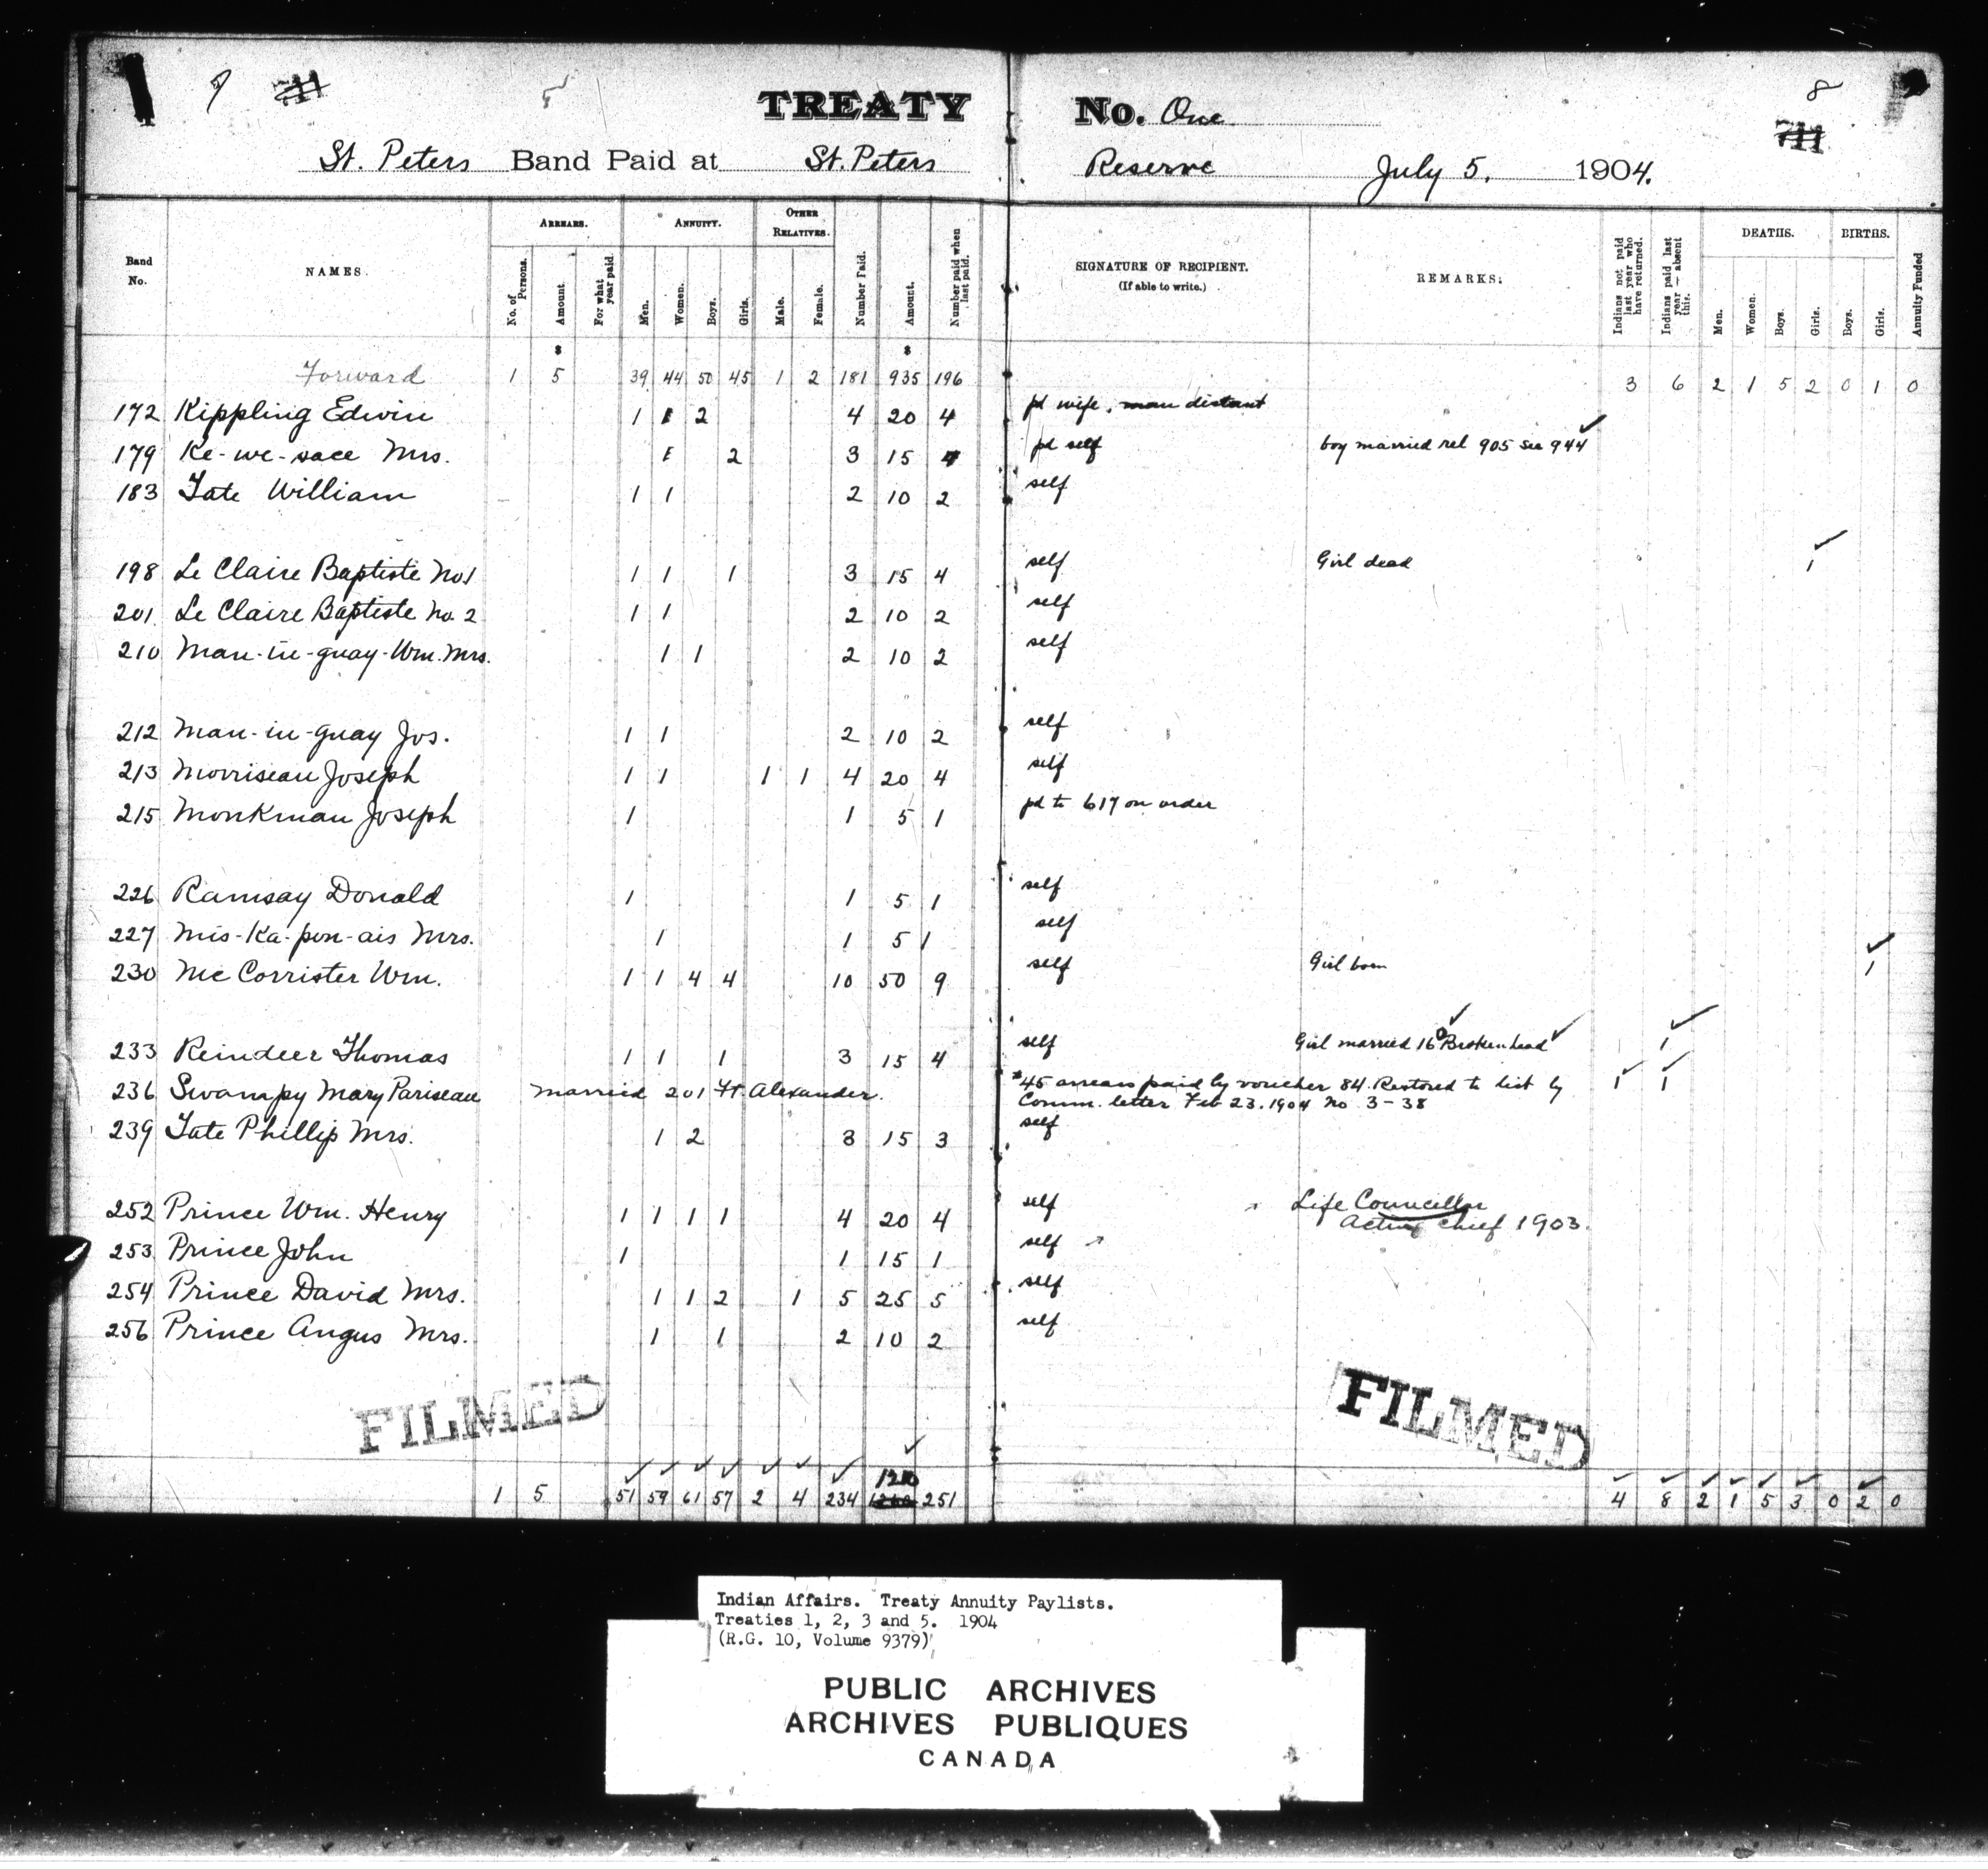 TREATY No. One
St. Peters Band Paid at St. Peters Reserve July 5. 1904.
8
Band No. NAMES. ARREARS. No. of Persons. Amount. For what year paid. ANNUITY. Men. Women. Boys. Girls. OTHER RELATIVES. Male. Female. Number Paid. Amount. Number paid when last paid. SIGNATURE OF RECIPIENT. (If able to write.) REMARKS. Indians not paid last year who have returned. Indians paid last year — absent this. DEATHS. Men. Women. Boys. Girls. BIRTHS. Boys. Girls. Annuity Funded
$ $
Forward 1 5 39 44 50 45 1 2 181 935 196 3 6 2 1 5 2 0 1 0
172 Kippling Edwin 1 1 2 4 20 4 pd wife, man distant
179 Ke-we-sace Mrs. 1 2 3 15 4 pd self boy married rel 905 see 944
183 Tate William 1 1 2 10 2 self
198 Le Claire Baptiste No 1 1 1 1 3 15 4 self Girl dead 1
201 Le Claire Baptiste No. 2 1 1 2 10 2 self
210 Man-in-guay-Wm. Mrs. 1 1 2 10 2 self
212 Man-in-guay Jos. 1 1 2 10 2 self
213 Morriseau Joseph 1 1 1 1 4 20 4 self
215 Monkman Joseph 1 1 5 1 pd to 617 on order
226 Ramsay Donald 1 1 5 1 self
227 Mis-Ka-pon-ais Mrs. 1 1 5 1 self
230 Mc Corrister Wm. 1 1 4 4 10 50 9 self Girl born 1
233 Reindeer Thomas 1 1 1 3 15 4 self Girl married 16 Brokenhead 1
236 Swampy Mary Pariseau Married 201 Ft. Alexander. $45 arrears paid by voucher 84. Restored to list by 1 1
Comm. letter Feb 23. 1904 No 3-38
239 Tate Phillip Mrs. 1 2 3 15 3 self
252 Prince Wm. Henry 1 1 1 1 4 20 4 self Life Councillor
Acting chief 1903.
253 Prince John 1 1 15 1 self
254 Prince David Mrs. 1 1 2 1 5 25 5 self
256 Prince Angus Mrs. 1 1 2 10 2 self
FILMED FILMED
1210
1 5 51 59 61 57 2 4 234 251 4 8 2 1 5 3 0 2 0
Indian Affairs. Treaty Annuity Paylists.
Treaties 1, 2, 3 and 5. 1904
(R.G. 10, Volume 9379)
PUBLIC ARCHIVES
ARCHIVES PUBLIQUES
CANADA